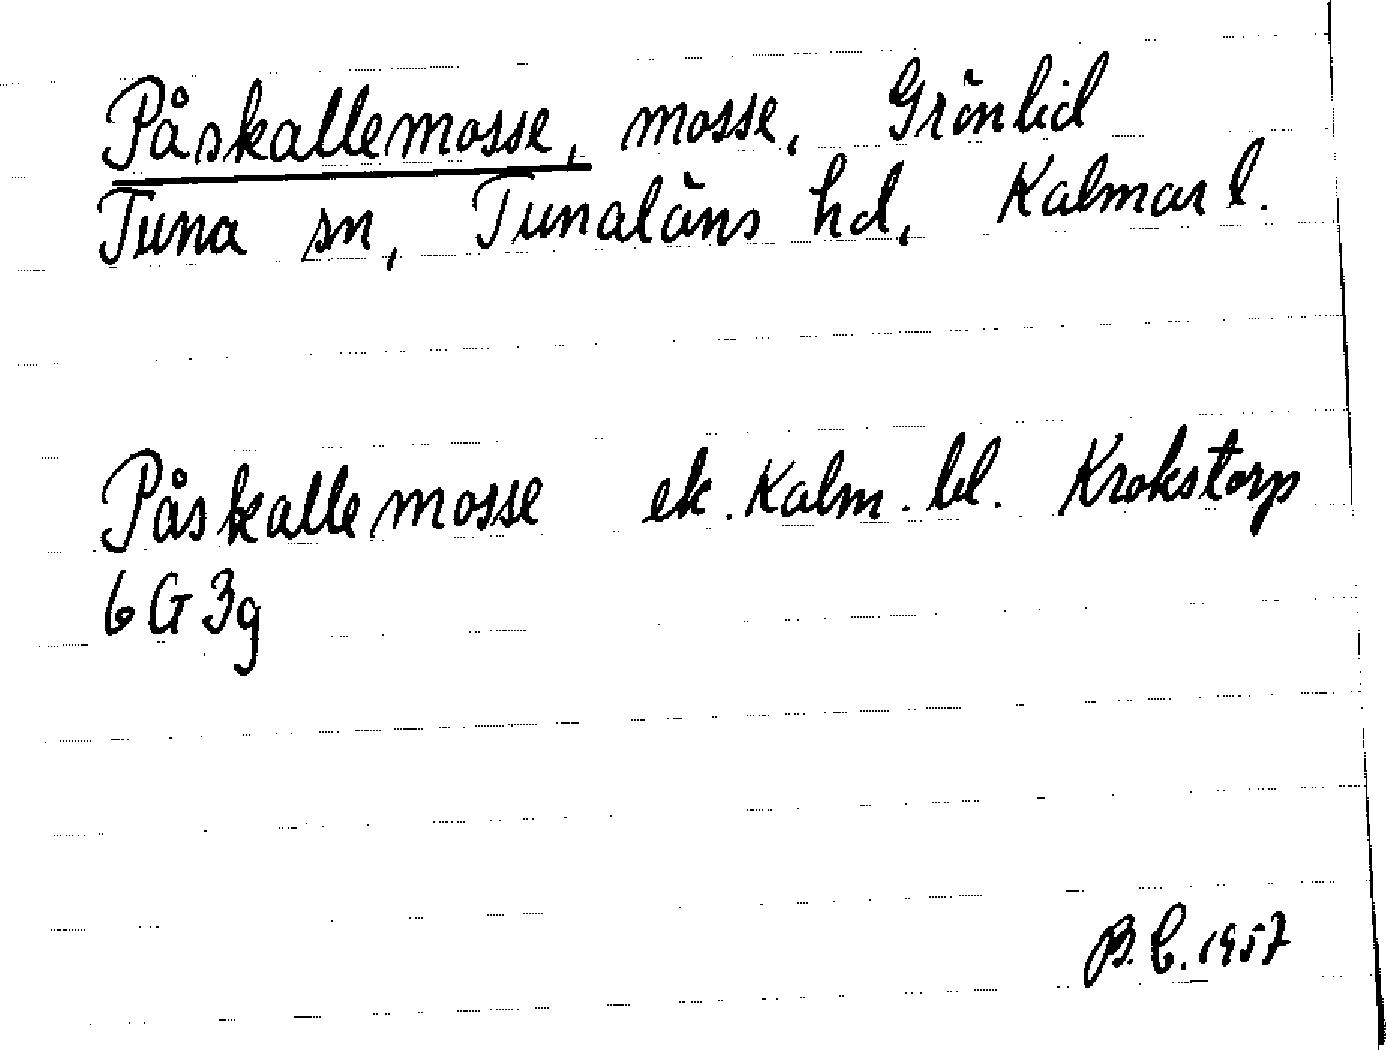 Påskallemosse, mosse, Grönlid
Tuna sn, Tunaläns hd, Kalmar l.
Påskallemosse ek. Kalm. bl. Krokstorp
6 G 3g
B.C. 1957